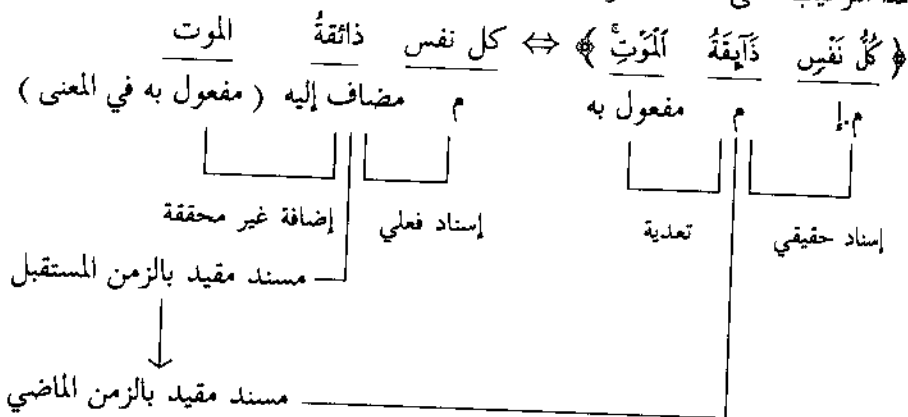 ﴿ كُلُّ نَفْسٍ ذَآئِقَةُ ٱلْمَوْتِۗ ﴾ ⇔ كل نفس ذائقةُ الموت
م.إ م مفعول به م مضاف إليه ( مفعول به في المعنى )
إسناد حقيقي تعدية إسناد فعلي إضافة غير محققة
مسند مقيد بالزمن المستقبل
مسند مقيد بالزمن الماضي